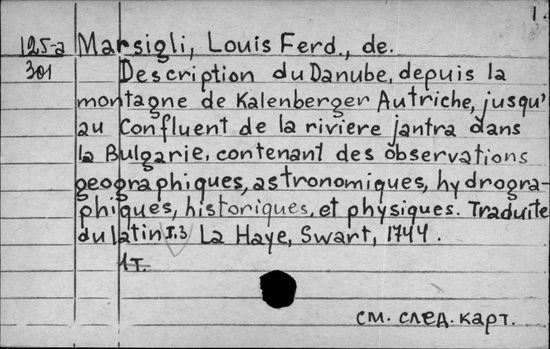 1.
125-a Marsigli, Louis Ferd., de.
301 Description du Danube, depuis la
montagne de Kalenberger Autriche, jusqu'
au Confluent de la riviere jantra dans
la Bulgarie, contenant des observations
geographiques, astronomiques, hydrogra-
phiques, historiques, et physiques. Traduite
du latin T.3 La Haye, Swart, 1744.
1т.
см. след. карт.